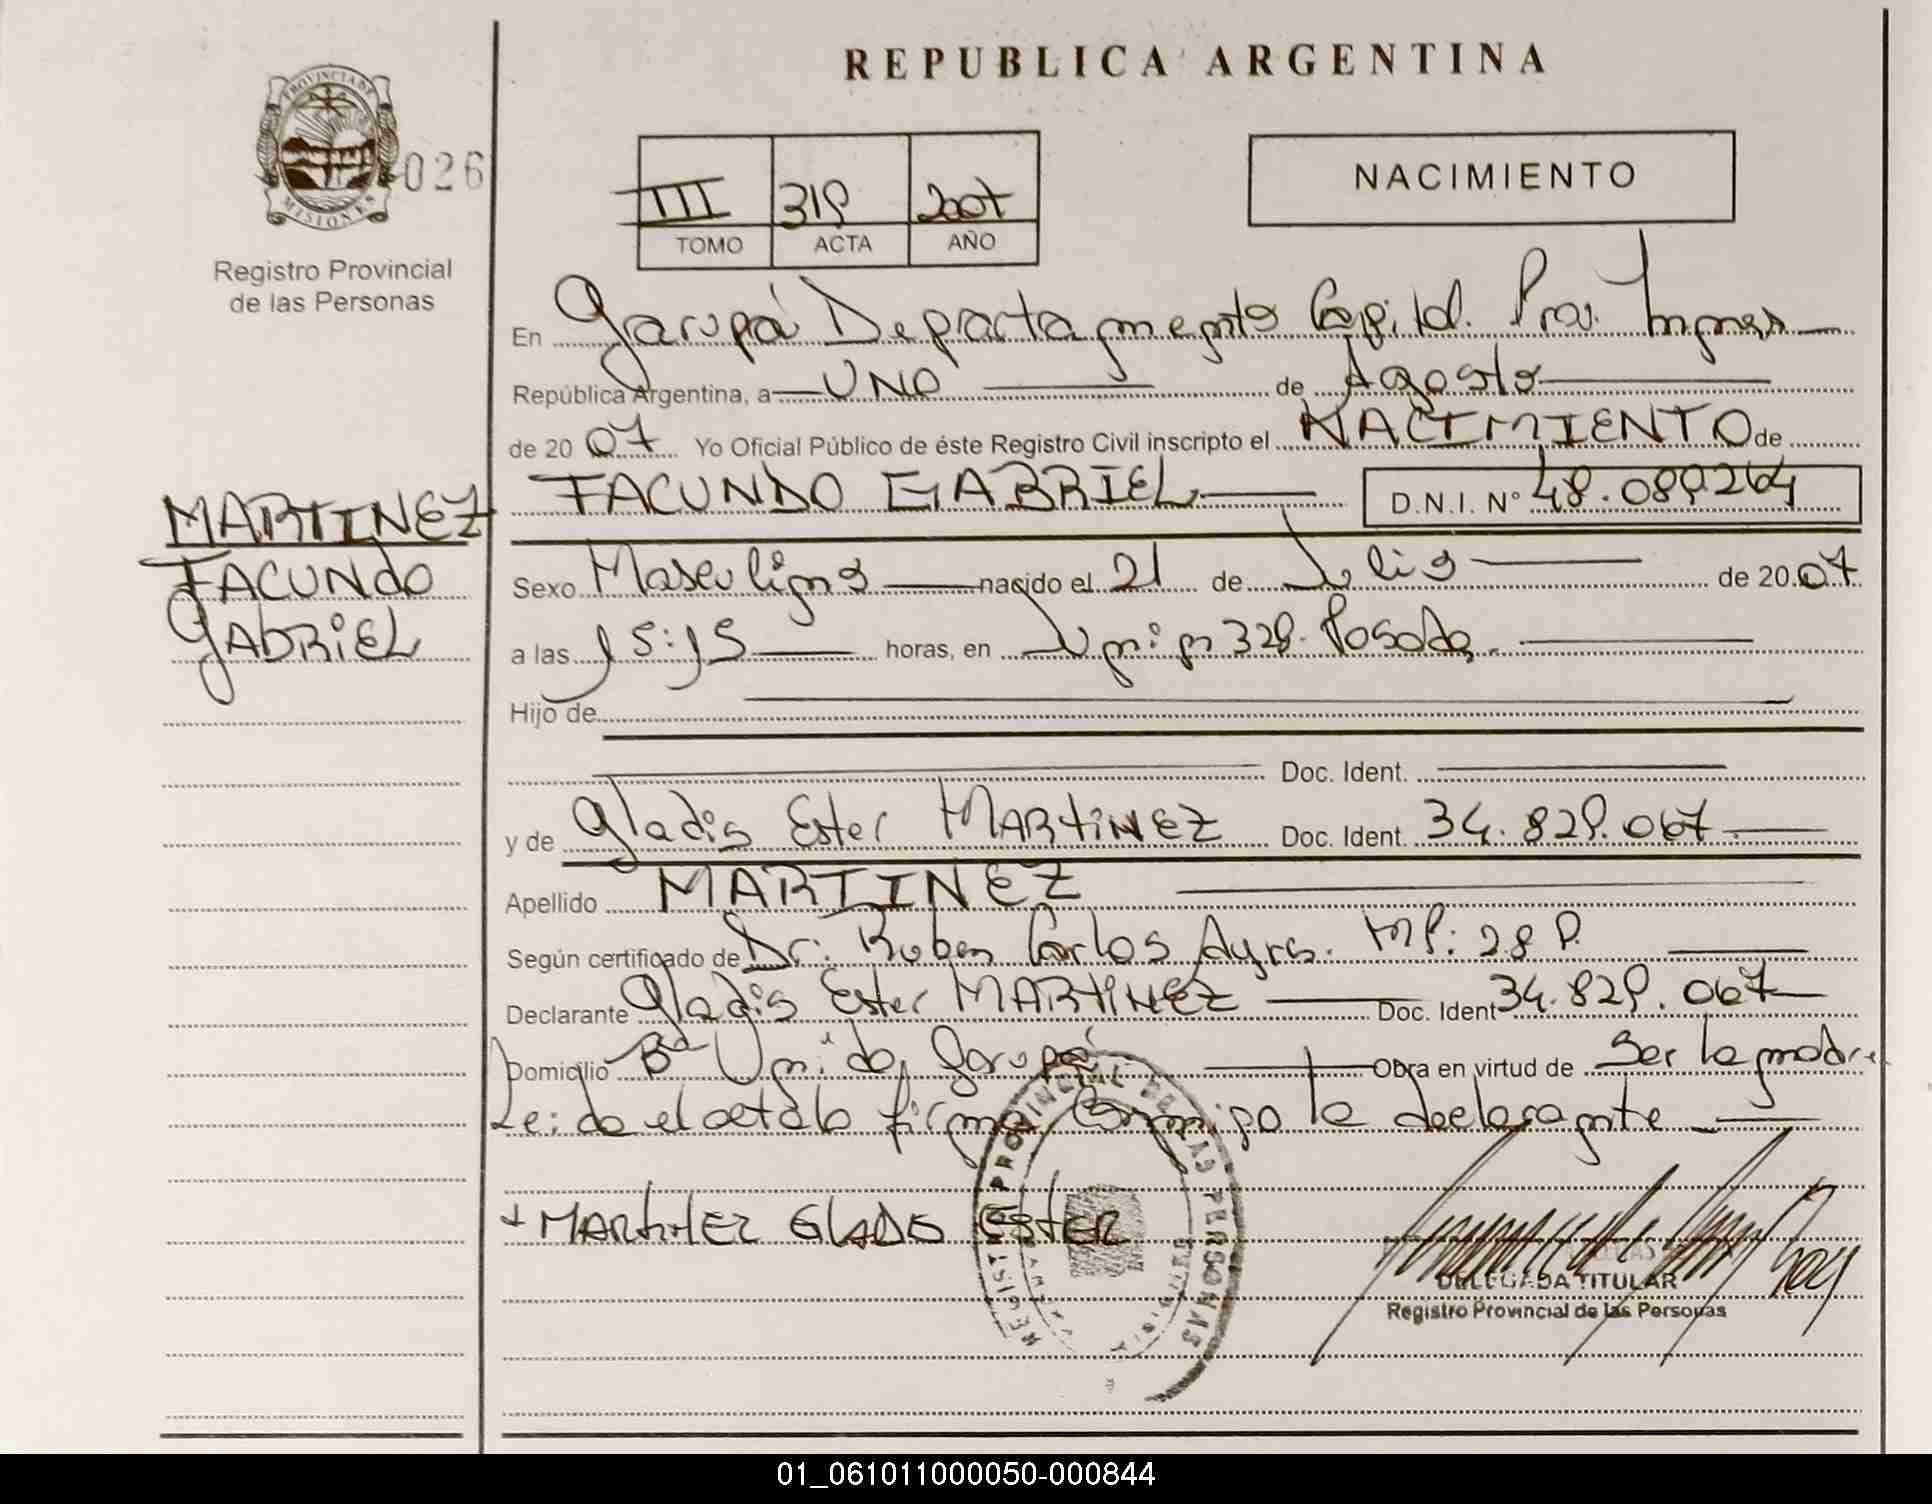 REPUBLICA ARGENTINA
PROVINCIA DE MISIONES
026
Registro Provincial
de las Personas
III 319 2007
TOMO ACTA AÑO
NACIMIENTO
En Garupá Departamento Capital. Prov. Mnes
República Argentina, a UNO de Agosto
de 2007 Yo Oficial Público de éste Registro Civil inscripto el NACIMIENTO de
FACUNDO GABRIEL D.N.I. Nº 48.089.264
MARTINEZ
FACUNDO
GABRIEL
Sexo Masculino nacido el 21 de Julio de 2007
a las 15:15 horas, en Posadas.
Hijo de
Doc. Ident.
y de Gladis Ester MARTINEZ Doc. Ident. 34.829.067
Apellido MARTINEZ
Según certificado de Dr. Ruben Carlos MP: 289.
Declarante Gladis Ester MARTINEZ Doc. Ident 34.829.067
Domicilio Bº Unido, Garupá Obra en virtud de Ser la madre
Leida el acta la firma conmigo la declarante
MARTINEZ GLADIS ESTER
REGISTRO PROVINCIAL DE LAS PERSONAS
DELEGADA TITULAR
Registro Provincial de las Personas
01_061011000050-000844